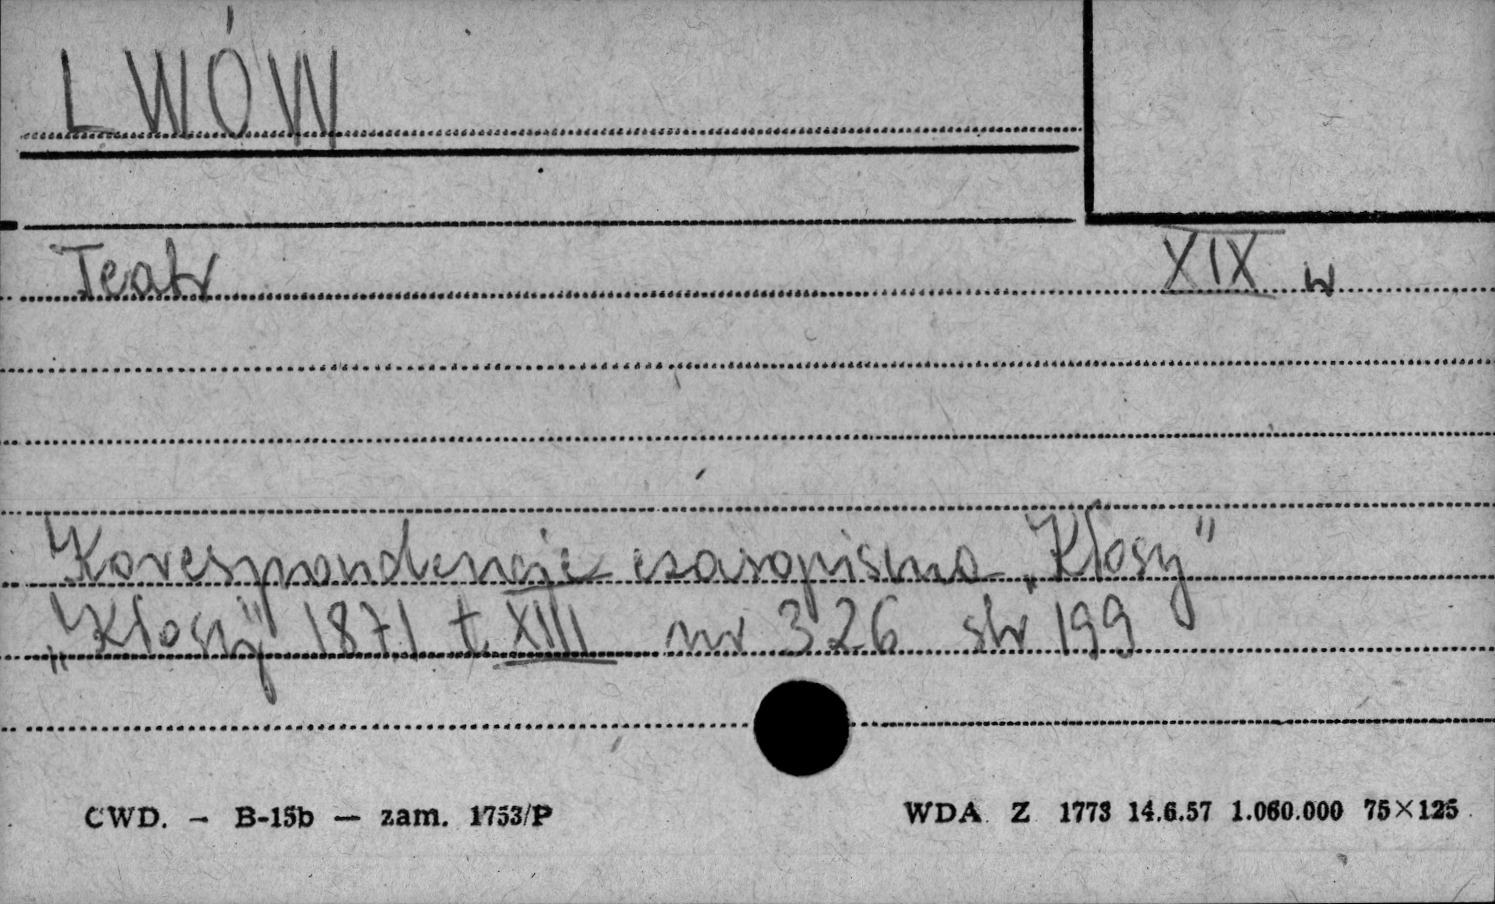 LWÓW
Teatr XIX w
Korespondencje czasopisma „Kłosy"
„Kłosy" 1871 t. XIII nr 326 str 199
CWD. — B-15b — zam. 1753/P WDA Z 1773 14.6.57 1.060.000 75×125